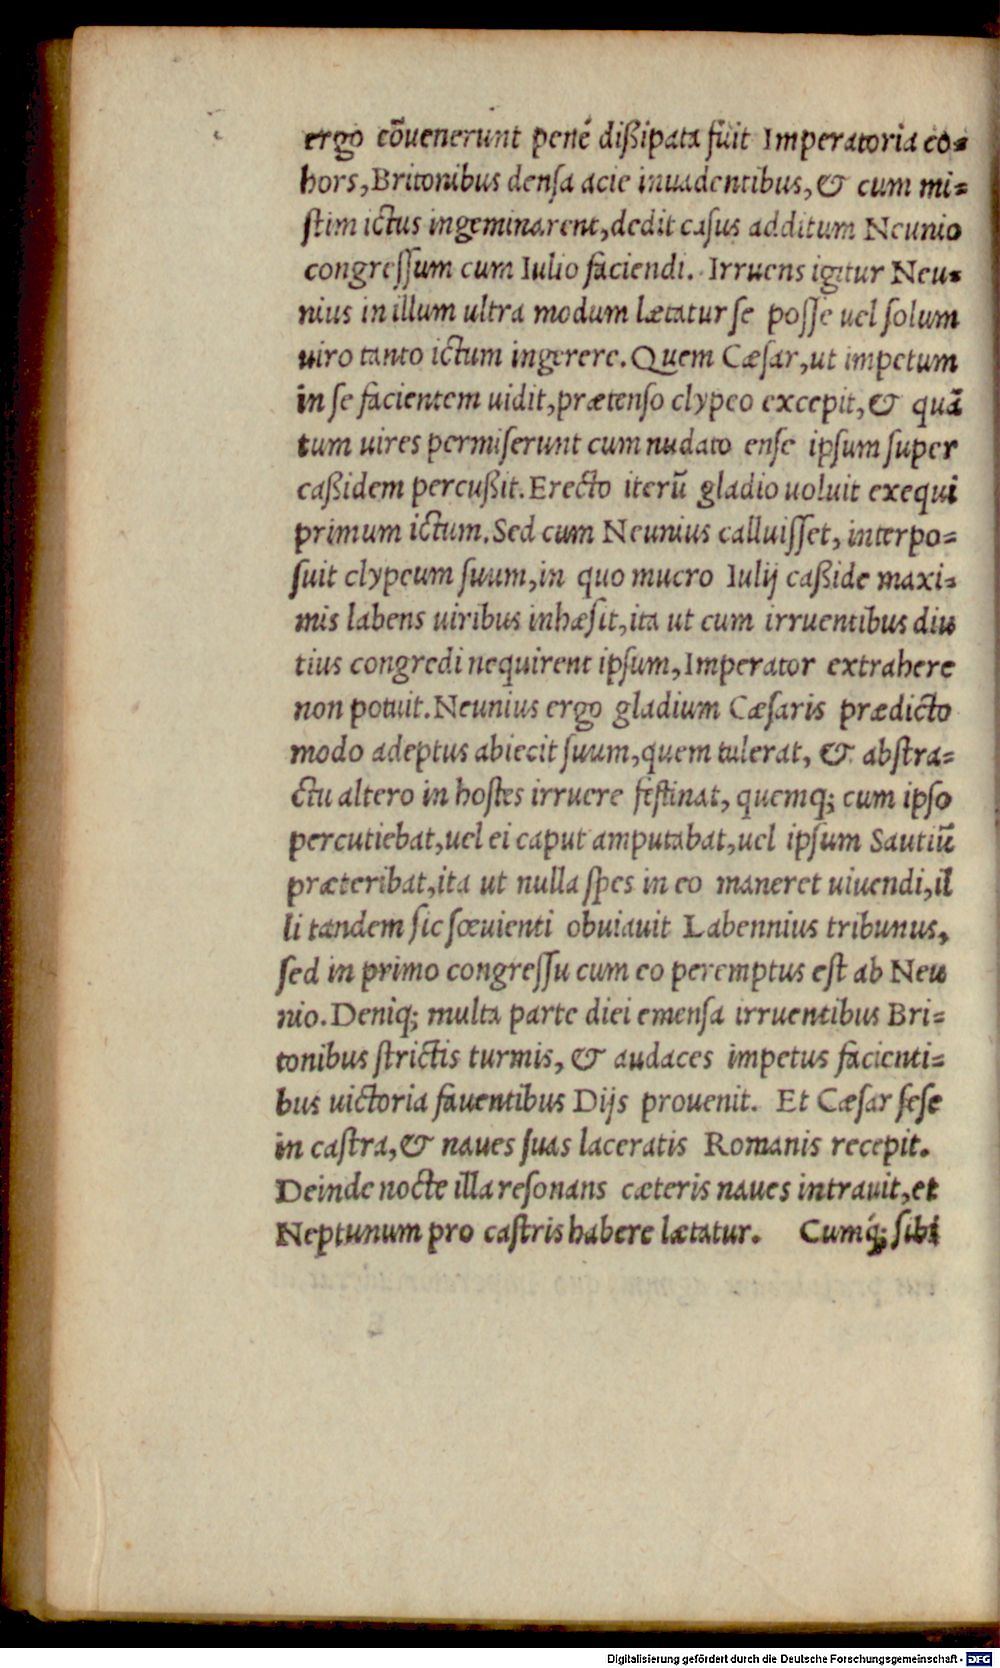 ergo cōuenerunt penè dißipata fuit Imperatoria co=
hors, Britonibus densa acie inuadentibus, & cum mi=
stim ictus ingeminarent, dedit casus additum Neunio
congressum cum Iulio faciendi. Irruens igitur Neu=
nius in illum ultra modum lætatur se posse uel solum
uiro tanto ictum ingerere. Quem Cæsar, ut impetum
in se facientem uidit, prætenso clypeo excepit, & quā
tum uires permiserunt cum nudato ense ipsum super
caßidem percußit. Erecto iterū gladio uoluit exequi
primum ictum. Sed cum Neunius calluisset, interpo=
suit clypeum suum, in quo mucro Iulij caßide maxi=
mis labens uiribus inhæsit, ita ut cum irruentibus diu
tius congredi nequirent ipsum, Imperator extrahere
non potuit. Neunius ergo gladium Cæsaris prædicto
modo adeptus abiecit suum, quem tulerat, & abstra=
ctu altero in hostes irruere festinat, quemq; cum ipso
percutiebat, uel ei caput amputabat, uel ipsum Sautiū
præteribat, ita ut nulla spes in eo maneret uiuendi, il
li tandem sic sœuienti obuiauit Labennius tribunus,
sed in primo congressu cum eo peremptus est ab Neu
nio. Deniq; multa parte diei emensa irruentibus Bri=
tonibus strictis turmis, & audaces impetus facienti=
bus uictoria fauentibus Dijs prouenit. Et Cæsar sese
in castra, & naues suas laceratis Romanis recepit.
Deinde nocte illa resonans cæteris naues intrauit, et
Neptunum pro castris habere lætatur. Cumq́; sibi
Digitalisierung gefördert durch die Deutsche Forschungsgemeinschaft - DFG